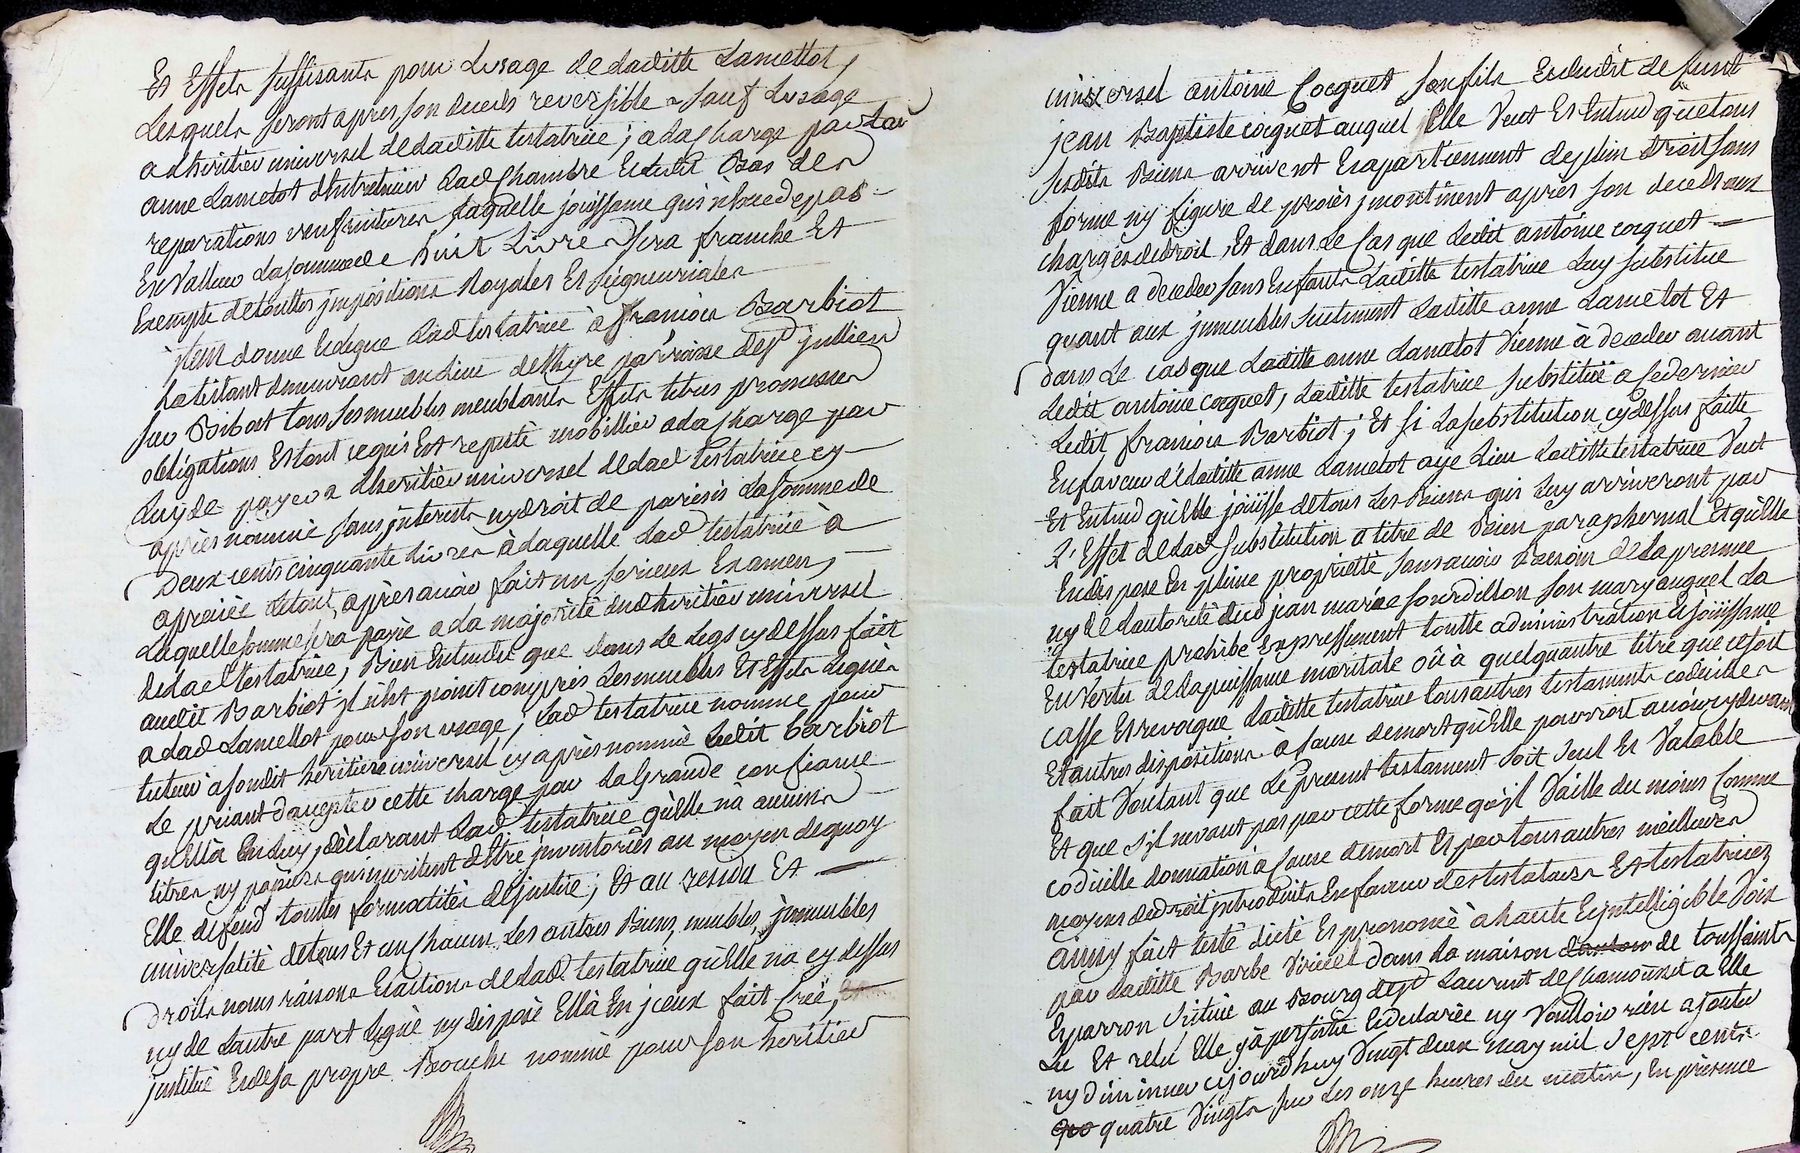 Et Effets suffisants pour Lusage de laditte Lamettot,
Lesquels seront apres son deceds reversible sauf Lusage
a Lheritier universel de laditte testatrice; a la charge par la
anne Lametot dEntretenir Lad Chambre Et ledit Bas de
reparations usufruitieres laquelle joüissance qui n'excede pas
En Valleur La somme de huit Livres sera franche Et
Exempte de touttes jmpositions Royales Et seigneuriales
jtem donne Et legue Lad testatrice à françois Barbiot
habitant demeurant au Lieu de parroisse de st jullien
sur Bibost tous ses meubles meublants Effets titres promesses
obligations Et tout ce qui Est reputé mobillier a la charge par
Luy de payer a Lheritier universel de lad testatrice cy
après nommé sans jnterests ny droit de parisis La somme de
Deux cents cinquante Livres à laquelle Lad testatrice à
apreciée Le tout après avoir fait un serieux Examen,
Laquelle somme sera payée a la majorité dud heritier universel
de lad testatrice, Bien Entendu que dans Le Legs cy dessus fait
audit Barbiot jl n'est point compris Les meubles Et Effets Legués
a lad Lamettot pour son usage; Lad testatrice nomme pour
tuteur a son dit heritier universel cy après nommé Ledit barbiot
Le priant daccepter cette charge par La Grande confiance
quElla En Luy, déclarant Lad testatrice qu'elle n'a aucuns
titres ny papiers qui meritent d'Etre jnventoriés au moyen de quoy
Elle defend touttes formalités de justice; Et au residu Et
universalité de tous Et un chacun Les autres Biens, meubles, jmmeubles
Droits noms raisons Et actions de lad testatrice qu'elle na cy dessus
ny de Lautre part Legué ny disposé Ella En jceux fait Créé,
jnstitué Et de sa propre Bouche nommé pour son heritier
universel antoine Cocquet son fils Et dudit defunt
jean Baptiste cocquet auquel Elle Veut Et Entend que tous
sesdits Biens arrivent Et apartiennent de plein Droit sans
forme ny figure de procès jncontinent après son decedt aux
charges de droit, Et dans Le Cas que Ledit antoine cocquet
Vienne a deceder sans Enfants Laditte testatrice Luy substitue
quant aux jmmeubles seulement Laditte anne Lametot Et
dans Le cas que Laditte anne Lametot Vienne à deceder avant
Ledit antoine cocquet, Laditte testatrice substitüe a ce dernier
Ledit françois Barbiot; Et si La substitution cy dessus faitte
En faveur de laditte anne Lametot aye Lieu Laditte testatrice Veut
Et Entend qu'elle joüisse de tous Les Biens qui Luy arriveront par
L'Effet de lad substitution a titre de Bien paraphernal Et qu'elle
En dispose En pleine propriété, sans avoir Besoin de la presence
ny de Lautorité dud jean marie Gourdillon son mary auquel La
testatrice prohibe Expressement toutte administration Et joüissance
En Vertu de la puissance maritale où à quelquautre titre que ce soit
casse Et revoque Laditte testatrice tous autres testaments codicilles
Et autres dispositions à Cause de mort qu'Elle pourroit avoir cy devant
fait Voulant que Le present testament soit seul Et Valable
Et que s'jl ne vaut pas par cette forme qu'jl Vaille du moins Comme
codicille donnation à Cause de mort Et par tous autres meilleures
moyens de droit jntroduits En faveur des testateurs Et testatrices
ainsy fait testé dicté Et prononcé à haute Et jntelligible Voix
par Laditte Barbe Viricel dans La maison de toussaint
Esparron scituée au Bourg de st Laurent de Chamousset a Elle
Lu Et relu Elle y à persistée Et declarée ny Vouloir rien ajouter
ny diminuer cejourdhuy Vingt deux may mil sept cents
quatre Vingts sur Les onze heures du matin, En présence